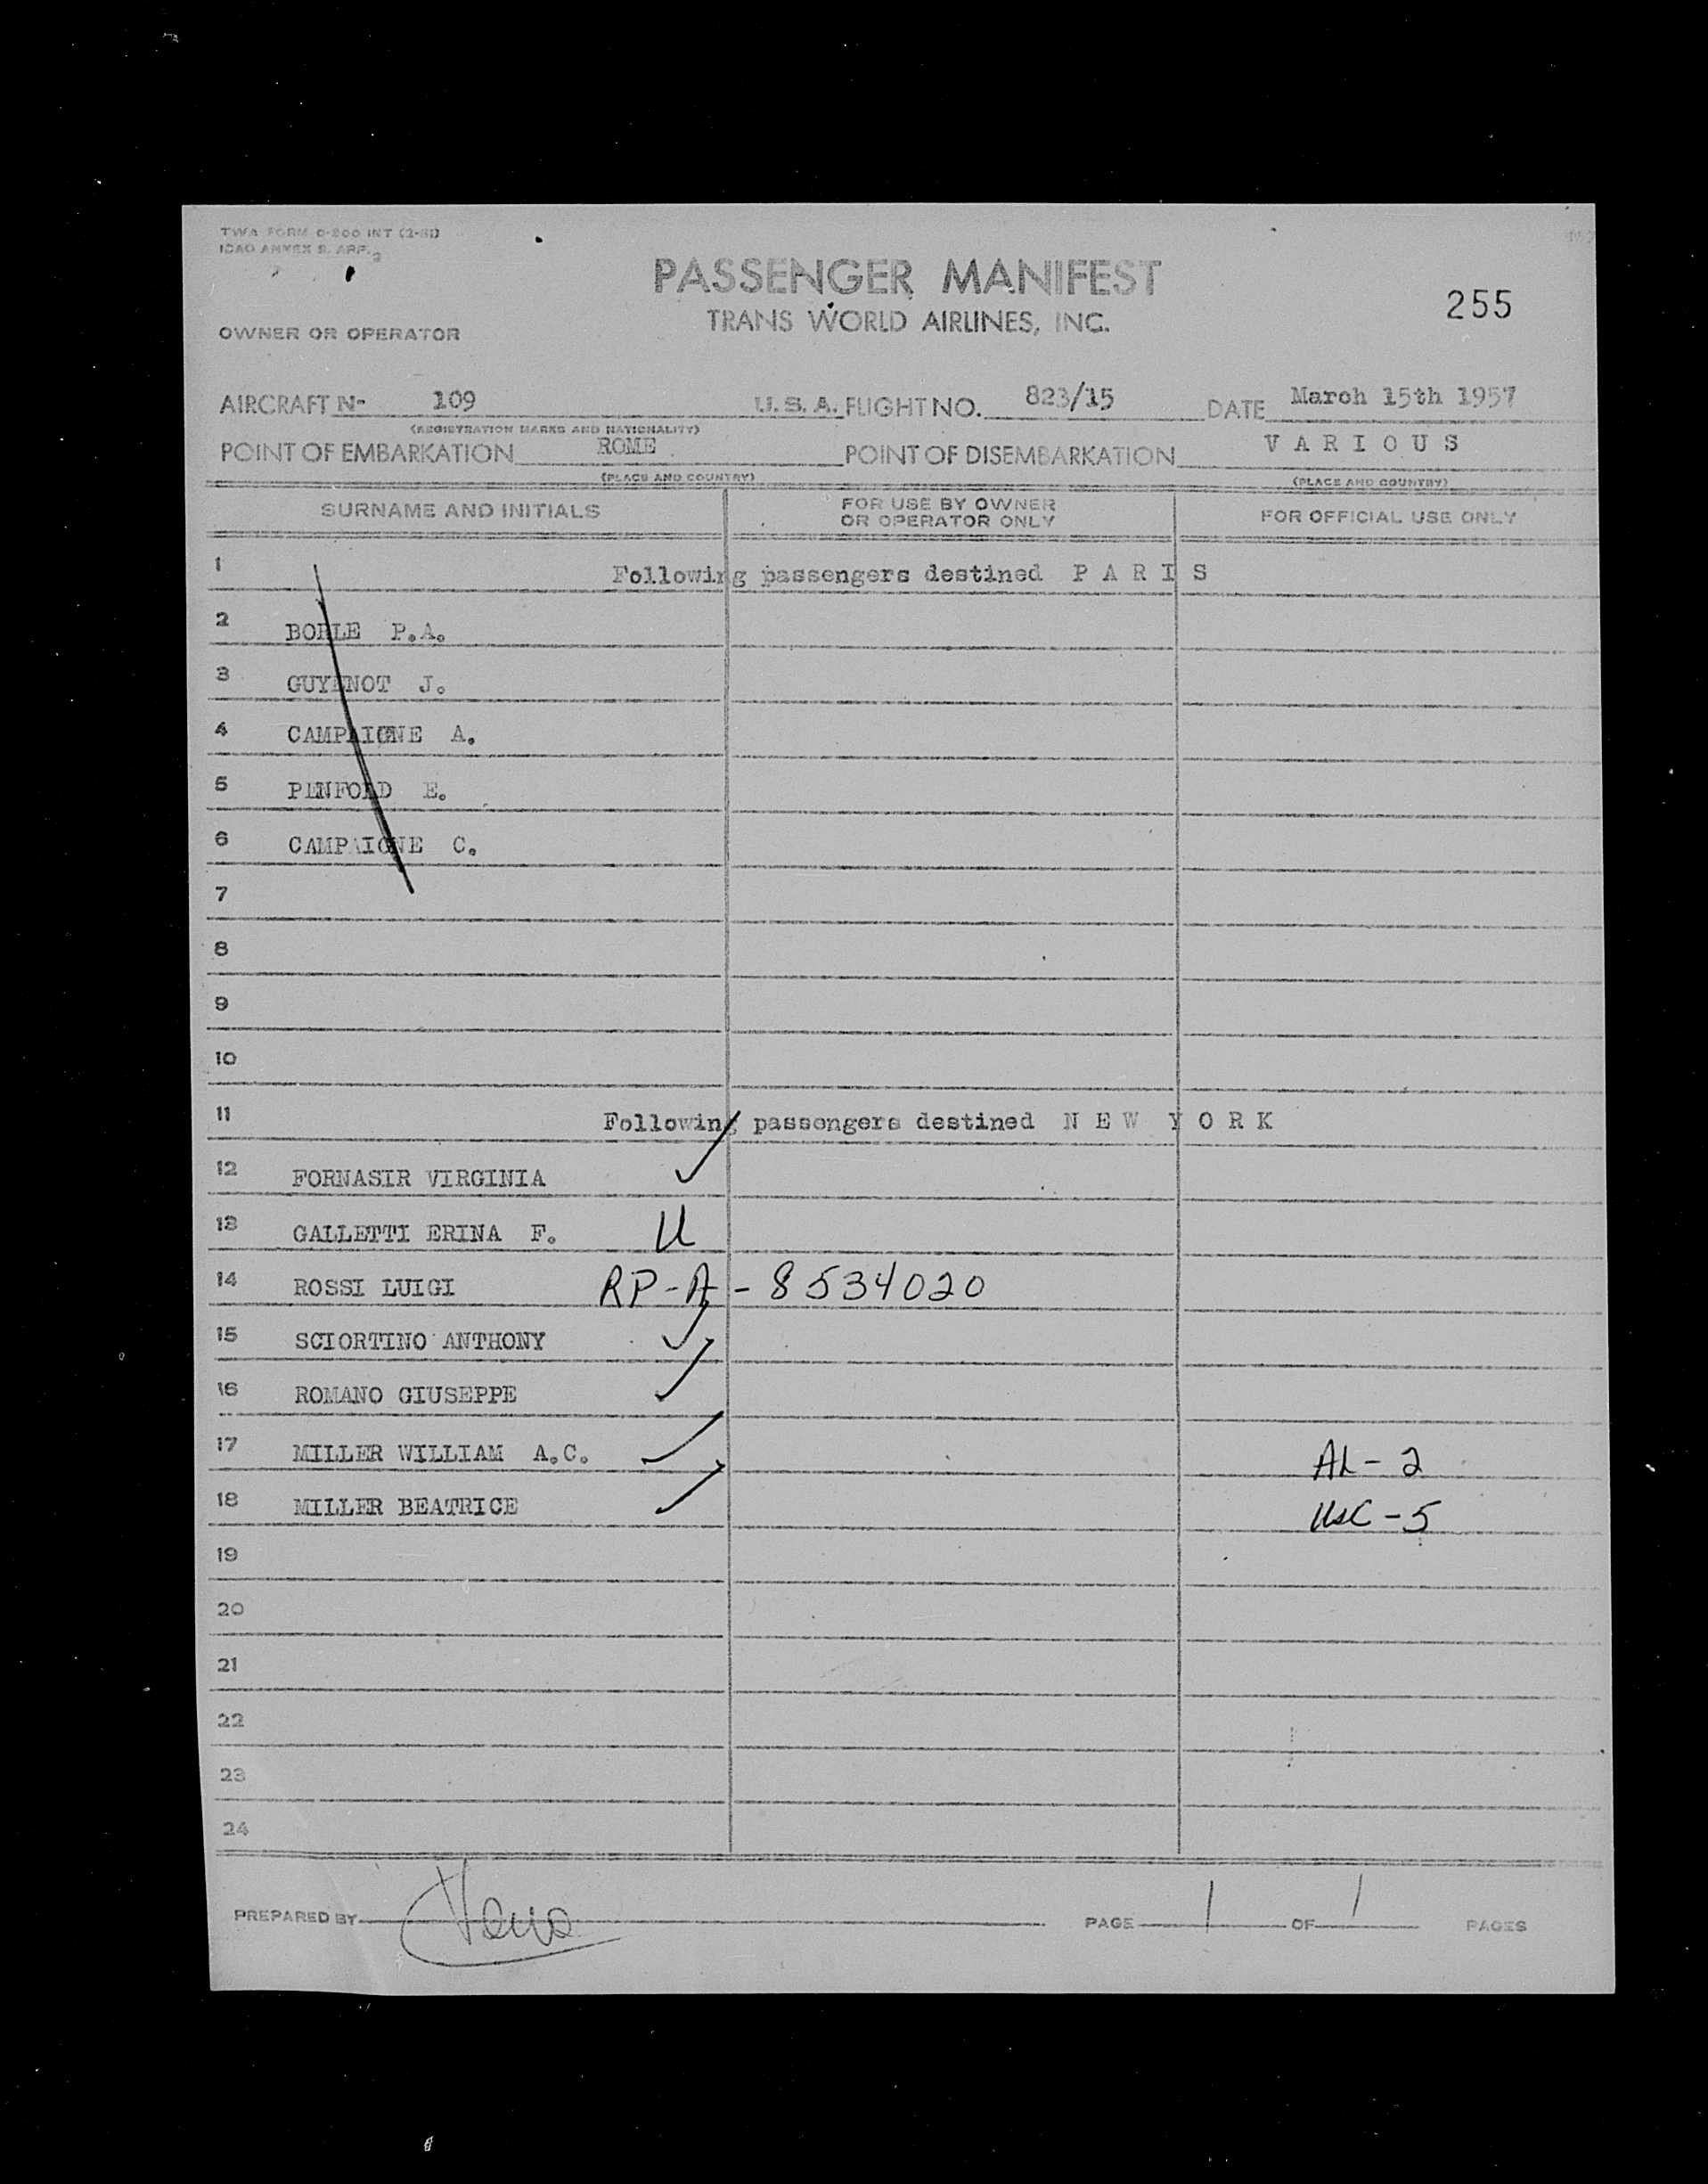 TWA FORM 0-200 INT (2-51)
ICAO ANNEX 9. APP. 3
PASSENGER MANIFEST
TRANS WORLD AIRLINES, INC.
255
OWNER OR OPERATOR
AIRCRAFT No 109 U.S.A. FLIGHT NO. 823/15 DATE March 15th 1957
(REGISTRATION MARKS AND NATIONALITY)
POINT OF EMBARKATION ROME POINT OF DISEMBARKATION VARIOUS
(PLACE AND COUNTRY) (PLACE AND COUNTRY)
SURNAME AND INITIALS FOR USE BY OWNER OR OPERATOR ONLY FOR OFFICIAL USE ONLY
1 Following passengers destined P A R I S
2 BORLE P.A.
3 GUYENOT J.
4 CAMPAIGNE A.
5 PENFOLD E.
6 CAMPAIGNE C.
7
8
9
10
11 Following passengers destined N E W Y O R K
12 FORNASIR VIRGINIA
13 GALLETTI ERINA F. U
14 ROSSI LUIGI RP-A-8534020
15 SCIORTINO ANTHONY
16 ROMANO GIUSEPPE
17 MILLER WILLIAM A.C. AL-2
18 MILLER BEATRICE USC-5
19
20
21
22
23
24
PREPARED BY PAGE 1 OF 1 PAGES